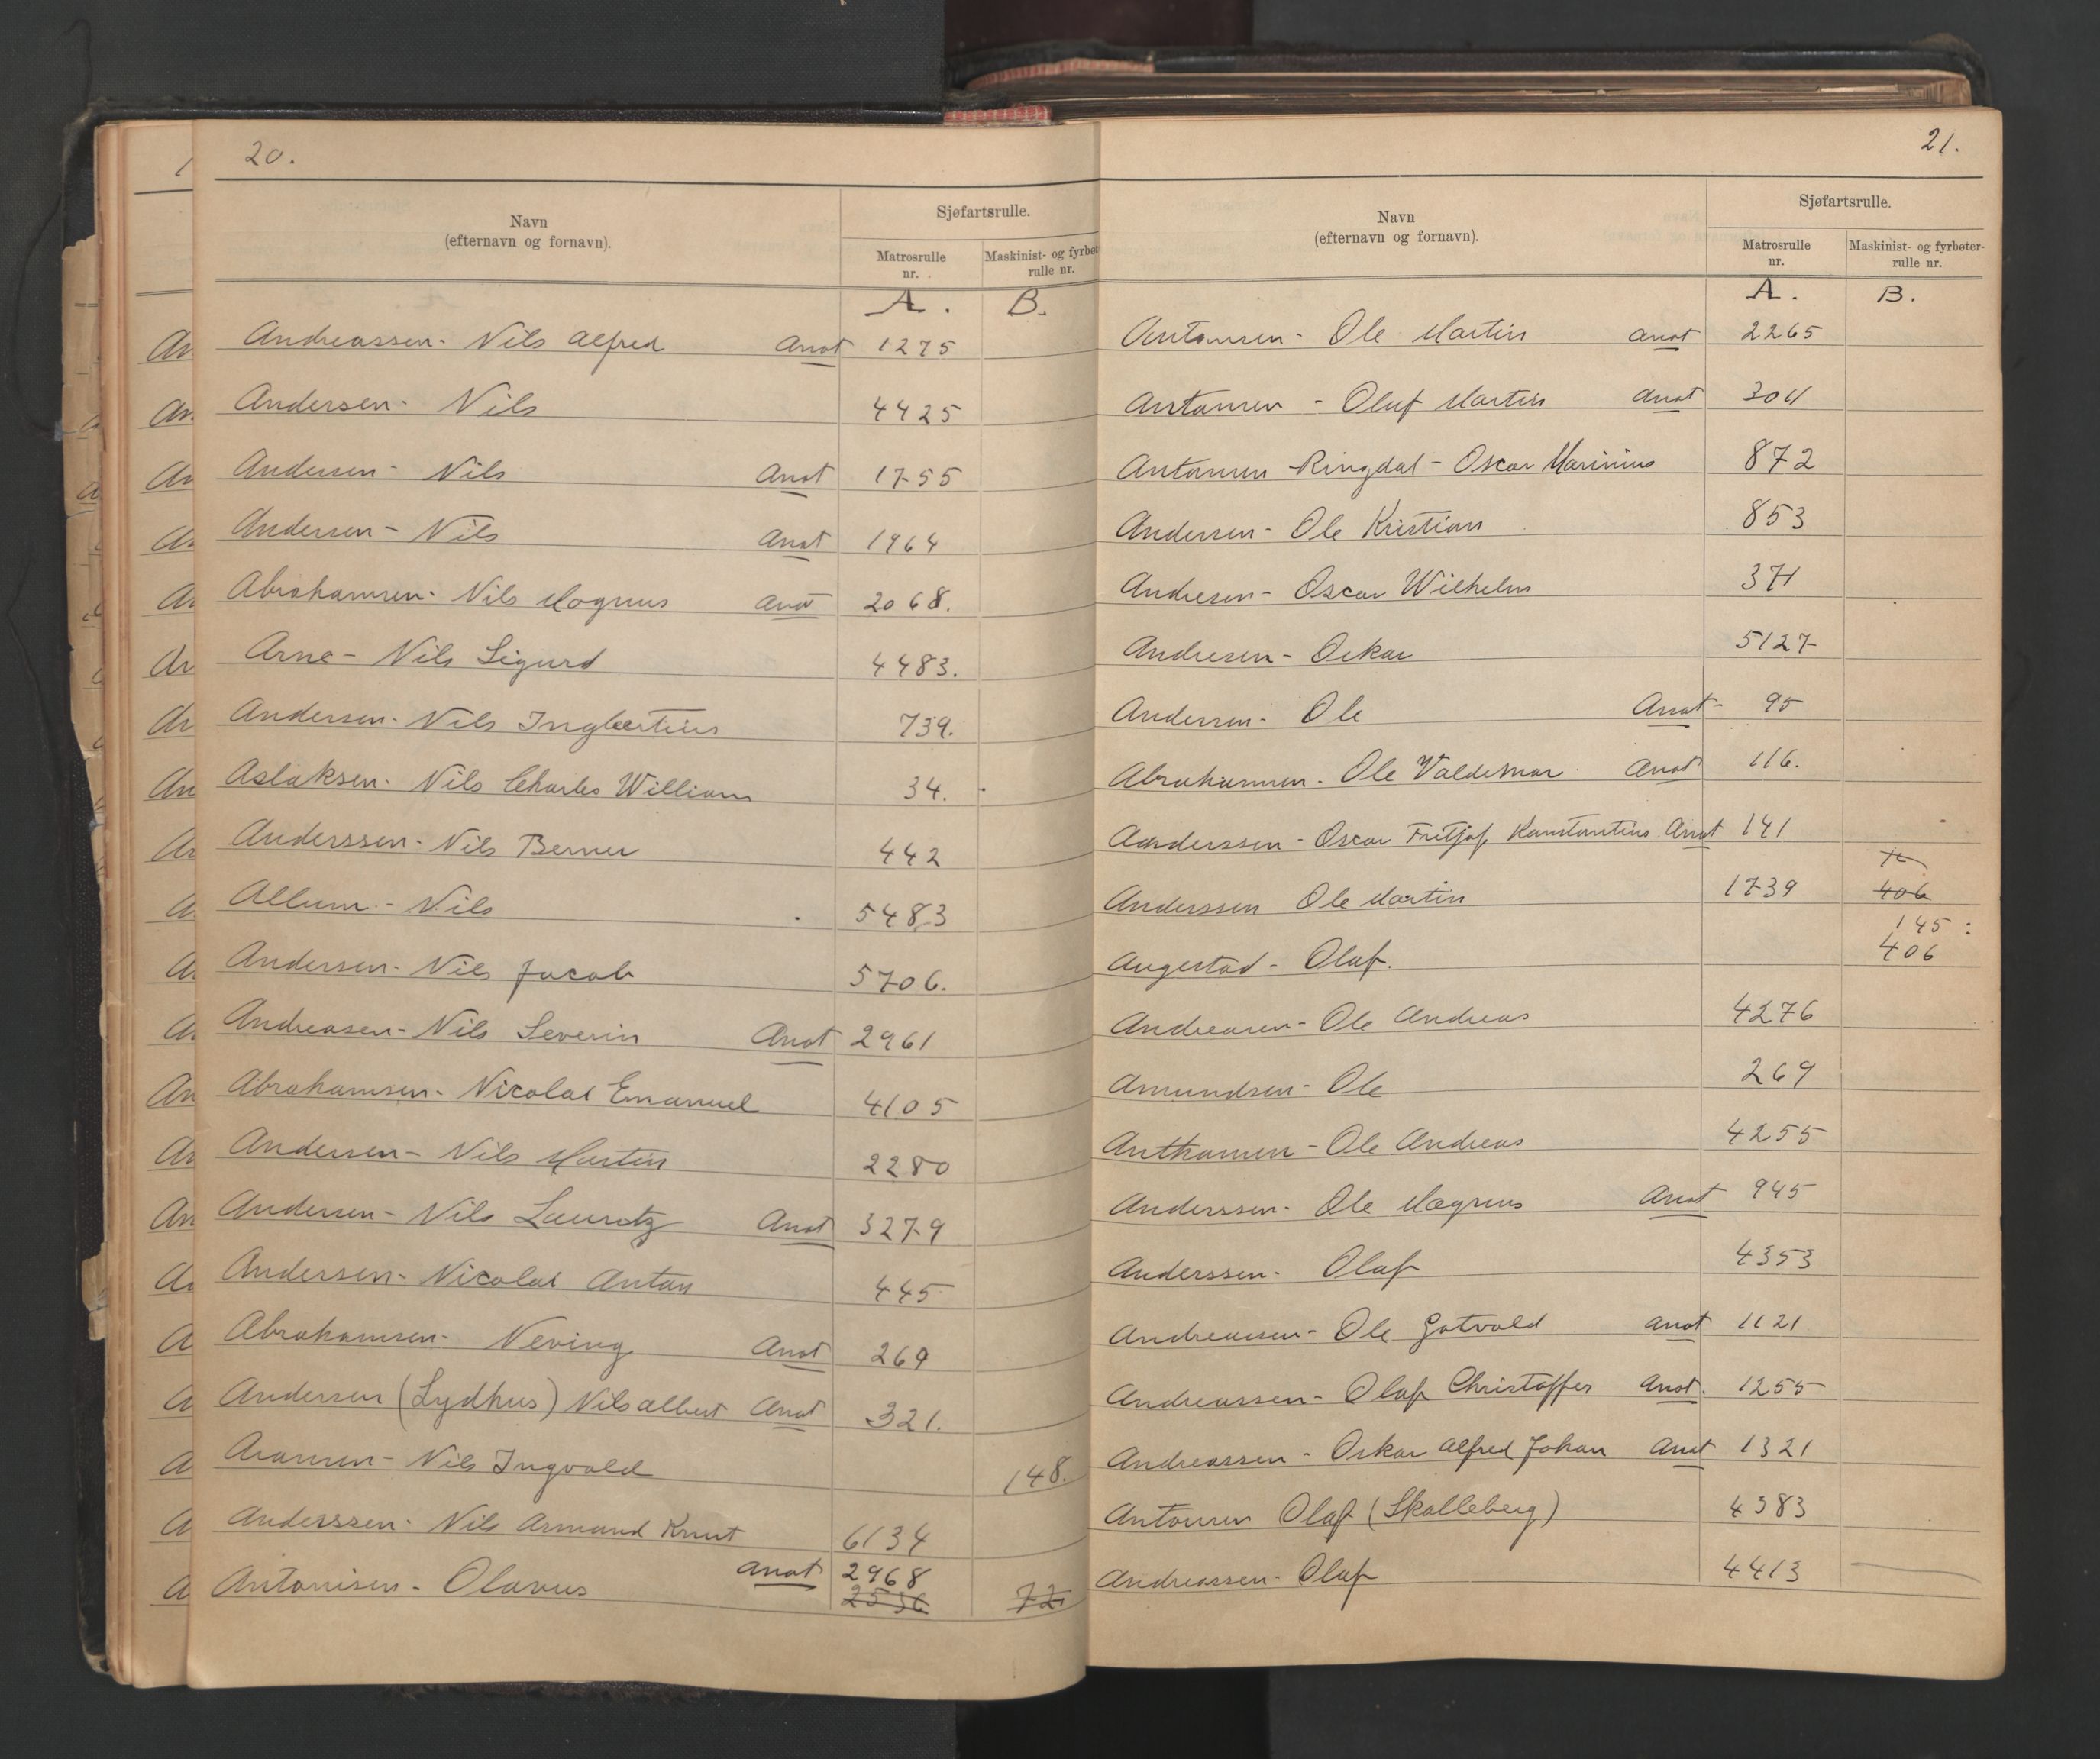 20.
Navn
(efternavn og fornavn).
Sjøfartsrulle.
Matrosrulle
nr.
Maskinist- og fyrbøt
rulle nr.
A. B.
Andreassen- Nils Alfred Anot 1275
Andersen- Nils 4425
Andersen- Nils Anot 1755
Andersen- Nils Anot 1964
Abrahamsen- Nils Magnus Anot 2068.
Arne- Nils Sigurd 4483.
Andersen- Nils Ingbertius 739.
Aslaksen- Nils Charles William 34.
Anderssen- Nils Berner 442
Allum- Nils 5483
Andersen- Nils Jacob 5706.
Andreasen- Nils Severin Anot 2961
Abrahamsen- Nicolai Emanuel 4105
Andersen- Nils Martin 2280
Andersen- Nils Lauritz Anot 3279
Anderssen- Nicolai Anton 445
Abrahamsen- Nering Anot 269
Andersen (Lydhus) Nils Albert Anot 321.
Aronsen- Nils Ingvald 148.
Anderssen- Nils Armand Knut 6134
Antonisen- Olavus Anot 2968
2536 72
21.
Navn
(efternavn og fornavn).
Sjøfartsrulle.
Matrosrulle
nr.
Maskinist- og fyrbøter-
rulle nr.
A. B.
Antonsen- Ole Martin Anot 2265
Antonsen - Oluf Martin Anot 304
Antonsen Ringdal- Oscar Marinius 872
Andersen- Ole Kristian 853
Andresen- Oscar Wilhelm 371
Andresen- Oskar 5127
Andersen- Ole Anot- 95
Abrahamsen- Ole Valdemar Anot 116.
Aanderssen- Oscar Fritjof Konstantius Anot 141
Anderssen Ole Martin 1739 406
145:
Angestad- Olaf. 406
Andreasen- Ole Andreas 4276
Amundsen- Ole 269
Anthonsen- Ole Andreas 4255
Anderssen- Ole Magnus Anot 945
Anderssen- Olaf 4353
Andreassen- Ole Gotvald Anot 1121
Andreassen- Olaf Christoffer Anot. 1255
Andreassen- Oskar Alfred Johan Anot 1321
Antonsen Olaf (Skalleberg) 4383
Andreassen- Olaf 4413